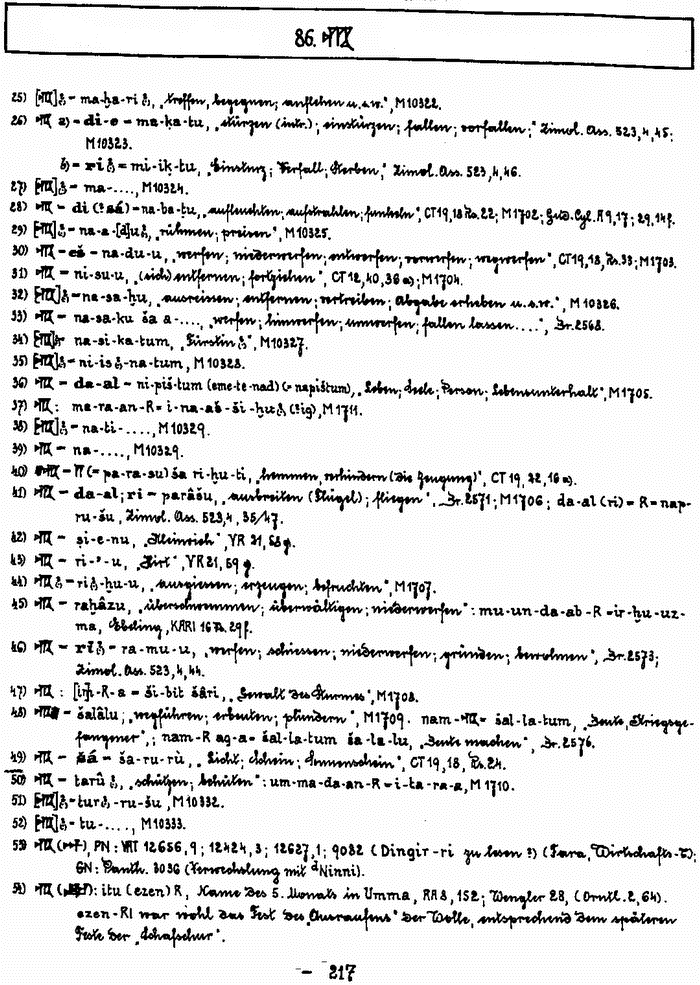 86. 𒊑
25) [𒊑] = ma-ḫa-ri, „treffen, begegnen; anflehen u.s.w.", M10322.
26) 𒊑 a) = di-e = ma-ḳa-tu, „stürzen (intr.); einstürzen; fallen; vorfallen;" Zimol. Ass. 523,4,45;
M10323.
b) = ri = mi-iḳ-tu, „Einsturz; Verfall; Sterben," Zimol. Ass. 523,4,46.
27) [𒊑] = ma-...., M10324.
28) 𒊑 = di (?sá) = na-ba-tu, „aufleuchten; aufstrahlen; funkeln", CT19,18 Rs.22; M1702; Gud. Cyl. A 9,17; 29,14f.
29) [𒊑] = na-a-[d]u, „rühmen; preisen", M10325.
30) 𒊑 = eš = na-du-u, „werfen; niederwerfen; entwerfen; verwerfen; wegwerfen", CT19,18, Rs.33; M1703.
31) 𒊑 = ni-su-u, „(sich) entfernen; fortziehen", CT12,40,36a; M1704.
32) [𒊑] = na-sa-ḫu, „ausreissen; entfernen; vertreiben; Abgabe erheben u.s.w.", M10326.
33) 𒊑 = na-sa-ku ša a-...., „werfen; hinwerfen; umwerfen; fallen lassen....", Br.2568.
34) [𒊑] na-si-ka-tum, „Fürstin", M10327.
35) [𒊑] = ni-is-na-tum, M10328.
36) 𒊑 = da-al = ni-piš-tum (eme-te-nad) (= napištum), „Leben; Seele; Person; Lebensunterhalt", M1705.
37) 𒊑 : ma-ra-an-R = i-na-aš-ši-ḫu (?ig), M1711.
38) [𒊑] = na-ti-...., M10329.
39) 𒊑 = na-...., M10329.
40) 𒊑 = (= pa-ra-su) ša ri-ḫu-ti, „hemmen, verhindern (die Zeugung)", CT19,22,16a.
41) 𒊑 = da-al; ri = parâšu, „ausbreiten (Flügel); fliegen", Br.2571; M1706; da-al (ri) = R = nap-
ru-šu, Zimol. Ass. 523,4,35/47.
42) 𒊑 = ṣi-e-nu, „Kleinvieh", VR 21,58g.
43) 𒊑 = ri-'-u, „Hirt", VR21,59g.
44) 𒊑 = ri-ḫu-u, „ausgiessen; erzeugen; befruchten", M1707.
45) 𒊑 = raḫâzu, „überschwemmen; überwältigen; niederwerfen": mu-un-da-ab-R = ir-ḫu-uz-
ma, Ebeling, KARI 16 Rs. 29f.
46) 𒊑 = ri = ra-mu-u, „werfen; schiessen; niederwerfen; gründen; bewohnen", Br.2573;
Zimol. Ass. 523,4,44.
47) 𒊑 : [im]-R-a = ši-bit šâri, „Gewalt des Sturmes", M1708.
48) 𒊑 = šalâlu; „wegführen; erbeuten; plündern", M1709. nam-𒊑 = šal-la-tum, „Beute, Kriegsge-
fangener",; nam-R ag-a = šal-la-tum ša-la-lu, „Beute machen", Br.2576.
49) 𒊑 = sá = ša-ru-rù, „Licht; Schein; Sonnenschein", CT19,18, Rs.24.
50) 𒊑 = tarû, „schützen; behüten": um-ma-da-an-R = i-ta-ra-a, M1710.
51) [𒊑] = tur-ru-šu, M10332.
52) [𒊑] = tu-...., M10333.
53) 𒊑 (), PN: VAT 12656,9; 12424,3; 12627,1; 9082 (Dingir-ri zu lesen?) (Fara, Wirtschafts-T);
GN: Panth. 3036 (Verwechslung mit ᵈNinni).
54) 𒊑 (): itu (ezen) R, Name des 5. Monats in Umma, RA8,152; Wengler 28, (Orntl. 2,64).
ezen-RI war wohl das Fest des „Ausraufens" der Wolle, entsprechend dem späteren
Feste der „Schafschur".
- 217